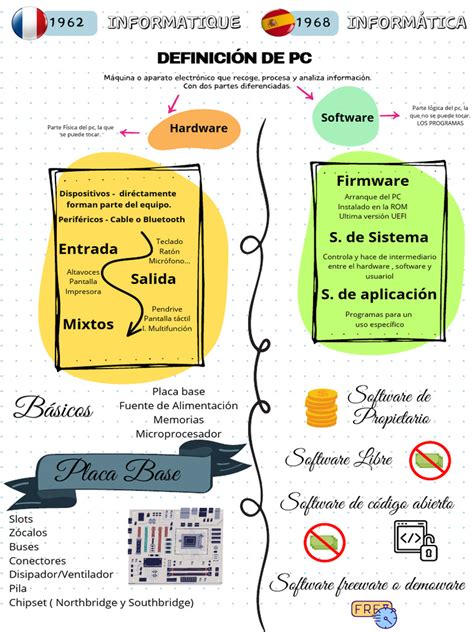 1962 INFORMATIQUE 1968 INFORMÁTICA
DEFINICIÓN DE PC
Máquina o aparato electrónico que recoge, procesa y analiza información.
Con dos partes diferenciadas.
Parte Física del pc, la que
se puede tocar.
Hardware
Software
Parte lógica del pc, la
que no se puede tocar.
LOS PROGRAMAS
Dispositivos - diréctamente
forman parte del equipo.
Periféricos - Cable o Bluetooth
Entrada
Teclado
Ratón
Micrófono...
Altavoces
Pantalla
Impresora
Salida
Mixtos
Pendrive
Pantalla táctil
I. Multifunción
Firmware
Arranque del PC
Instalado en la ROM
Ultima versión UEFI
S. de Sistema
Controla y hace de intermediario
entre el hardware , software y
usuariol
S. de aplicación
Programas para un
uso específico
Básicos
Placa base
Fuente de Alimentación
Memorias
Microprocesador
Placa Base
Slots
Zócalos
Buses
Conectores
Disipador/Ventilador
Pila
Chipset ( Northbridge y Southbridge)
Software de
Propietario
Software Libre
Software de código abierto
Software freeware o demoware
FREE